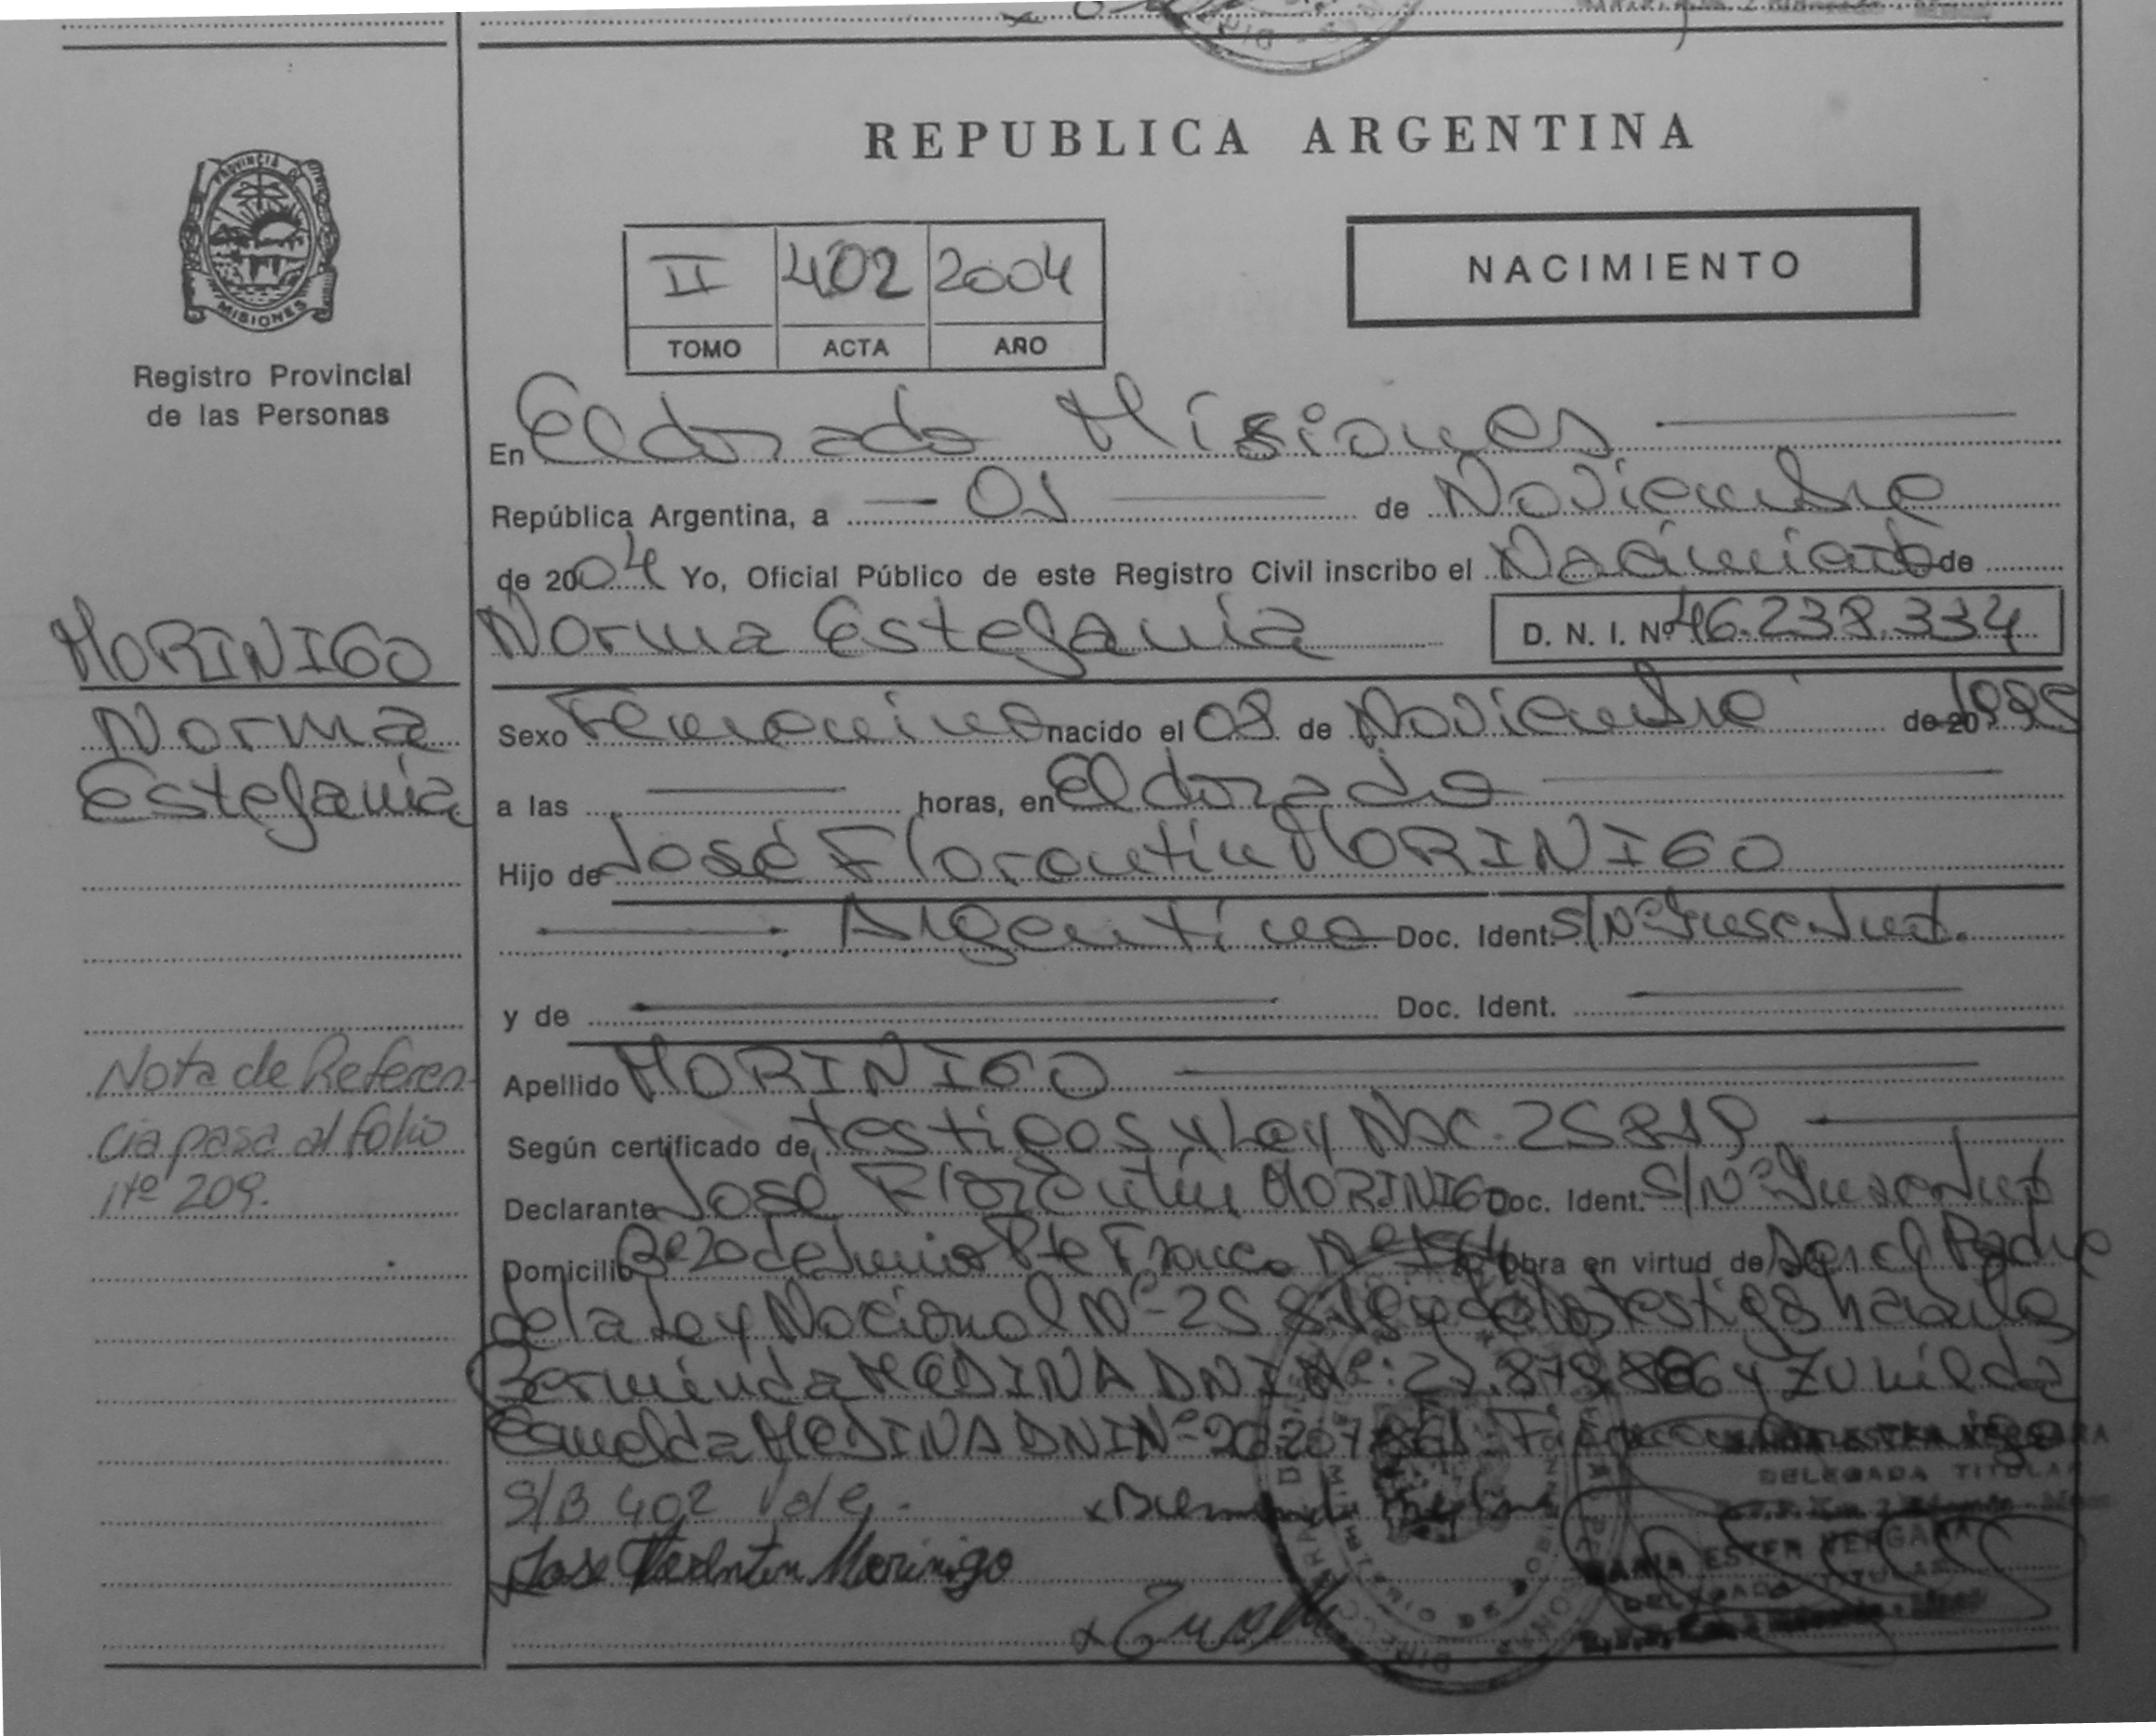 REPUBLICA ARGENTINA
PROVINCIA DE
MISIONES
Registro Provincial
de las Personas
II 402 2004
TOMO ACTA AÑO
NACIMIENTO
En Eldorado Misiones
República Argentina, a 01 de Noviembre
de 2004 Yo, Oficial Público de este Registro Civil inscribo el Nacimiento de
Norma Estefania D. N. I. Nº 46.238.334
MORINIGO
Norma
Estefania
Sexo Femenino nacido el 08 de Noviembre de 20 1995
a las horas, en Eldorado
Hijo de José Florentin MORINIGO
Argentino Doc. Ident. S/Nº
y de Doc. Ident.
Apellido MORINIGO
Según certificado de testigos y Ley Nac. 25819
Declarante José Florentin MORINIGO Doc. Ident. S/Nº
Domicilio Bº 20 de Junio Pte Franco Nº Obra en virtud de ser el Padre
de la Ley Nacional Nº 25819 y de los testigos
MEDINA DNI Nº: y Zunilda
MEDINA DNI Nº
S/B 402 Vale.
Jose Florentin Morinigo
Nota de Referen
cia pasa al folio
Nº 209.
DELEGADA TITULAR
MARIA ESTER VERGARA
DELEGADA TITULAR